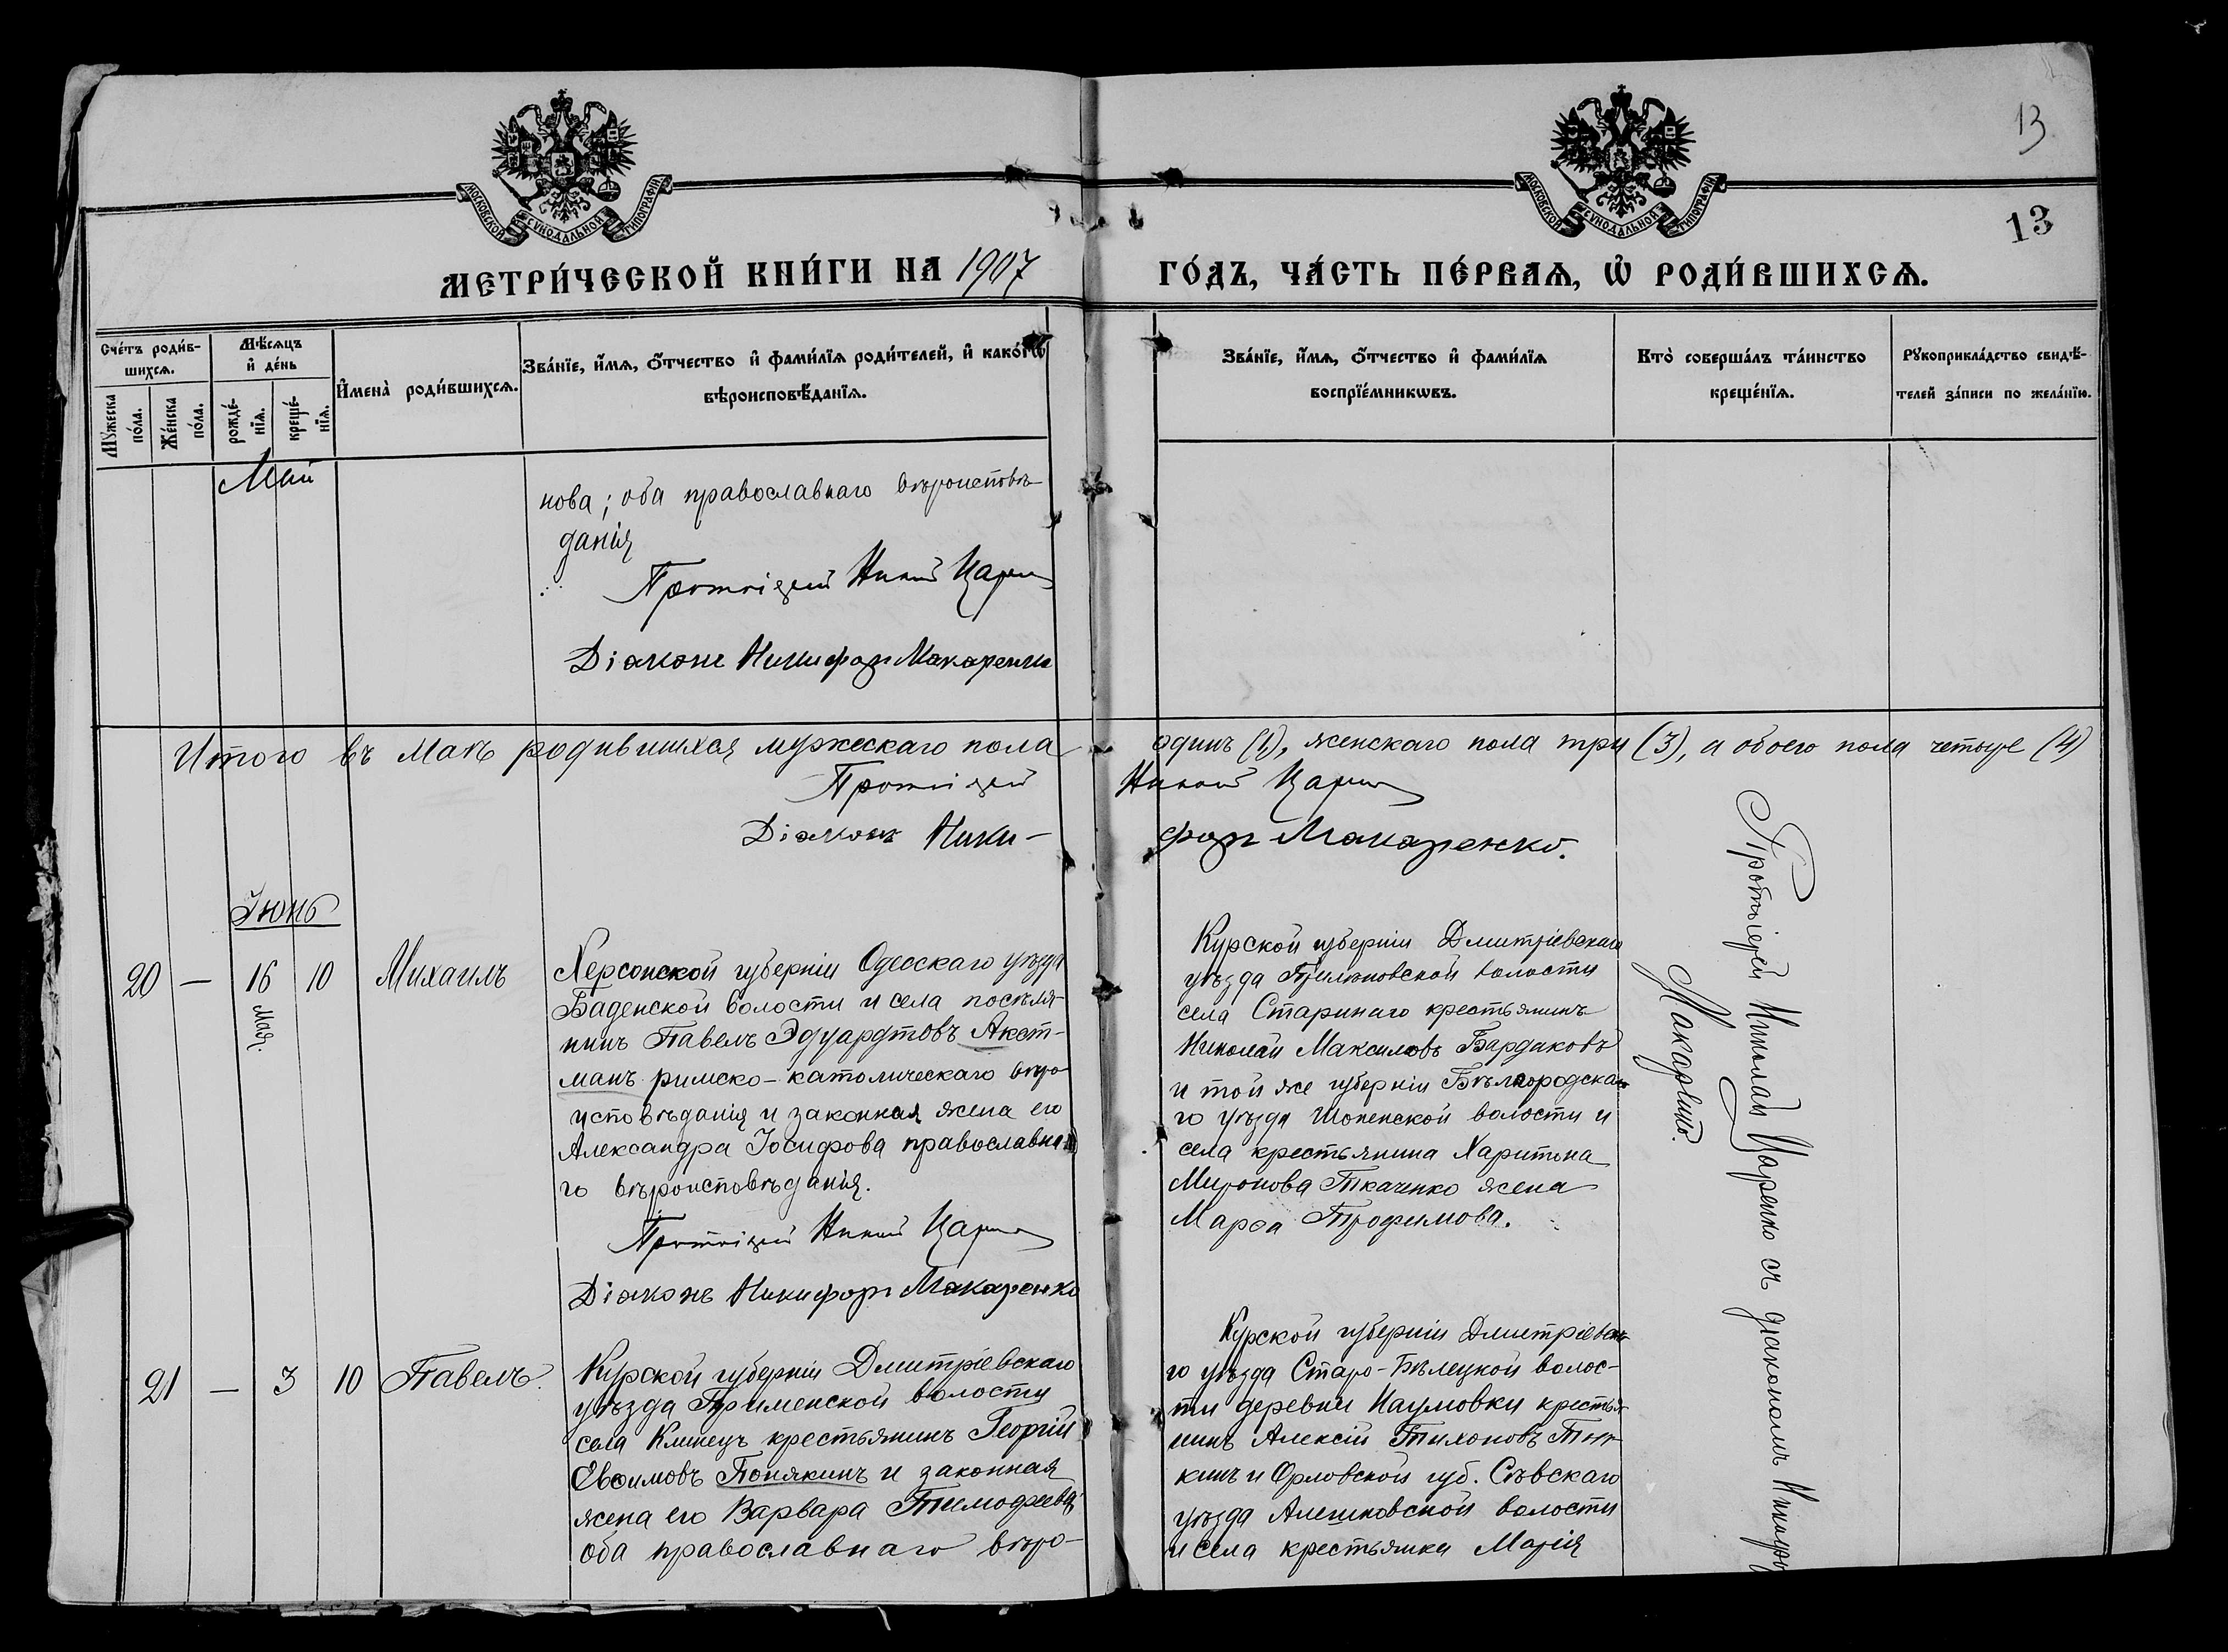 13
13
МОСКОВСКОЙ СѴНОДАЛЬНОЙ ТИПОГРАФІИ
МОСКОВСКОЙ СѴНОДАЛЬНОЙ ТИПОГРАФІИ
МЕТРИ́ЧЕСКОЙ КНИ́ГИ НА 1907
ГО́ДЪ, ЧА́СТЬ ПЕ́РВАѦ, Ѡ҆ РОДИ́ВШИХСѦ.
Сче́тъ роди́в-
шихсѧ.
Мꙋ́жеска
по́ла.
Же́нска
по́ла.
Мѣ́сѧцъ
и҆ де́нь
рожде́-
нїѧ.
креще́-
нїѧ.
И҆мена̀ роди́вшихсѧ.
Зва́нїе, и҆́мѧ, ѻ҆́тчество и҆ фами́лїѧ роди́телей, и҆ како́гѡ
вѣроисповѣ́данїѧ.
Зва́нїе, и҆́мѧ, ѻ҆́тчество и҆ фами́лїѧ
воспрїе́мникѡвъ.
Кто̀ соверша́лъ та́инство
креще́нїѧ.
Рꙋкоприкла́дство свидѣ́-
телей за́писи по жела́нїю.
Май
нова; оба православнаго вѣроисповѣ-
данія
Протоіерей Никол Царен
Діаконъ Никифоръ Макаренко
Итого въ Маѣ родившихся мужескаго пола
одинъ (1), женскаго пола три (3), а обоего пола четыре (4)
Протоіерей
Никол Царен
Діаконъ Ники-
форъ Макаренко.
Іюнь
20 — 16 10 Михаилъ
Мая.
Херсонской губерніи Одесскаго уѣзда
Баденской волости и села поселя-
нинъ Павелъ Эдуардтовъ Акст-
манъ римско-католическаго вѣро-
исповѣданія и законная жена его
Александра Іосифова православна-
го вѣроисповѣданія.
Протоіерей Никол Царен
Діаконъ Никифоръ Макаренко
Курской губерніи Дмитріевскаго
уѣзда волости
села Стариннаго крестьянинъ
Николай Максимовъ Бардаковъ
и той же губерніи Бѣлгородска-
го уѣзда Шопенской волости и
села крестьянина Харитона
Миронова Ткаченко жена
Марѳа Трофимова.
Протоіерей Николай Царенко съ діакономъ Никифор
Макаренко.
21 — 3 10 Павелъ.
Курской губерніи Дмитріевскаго
уѣзда волости
села Клинецъ крестьянинъ Георгій
Евѳимовъ Понякинъ и законная
жена его Варвара Тимофеева,
оба православнаго вѣро-
Курской губерніи Дмитріевска-
го уѣзда Старо-Бѣлецкой волос-
ти деревни Наумовки крестья-
нинъ Алексій Тихоновъ
кинъ и Орловской губ. Сѣвскаго
уѣзда Алешковской волости
и села крестьянка Марія